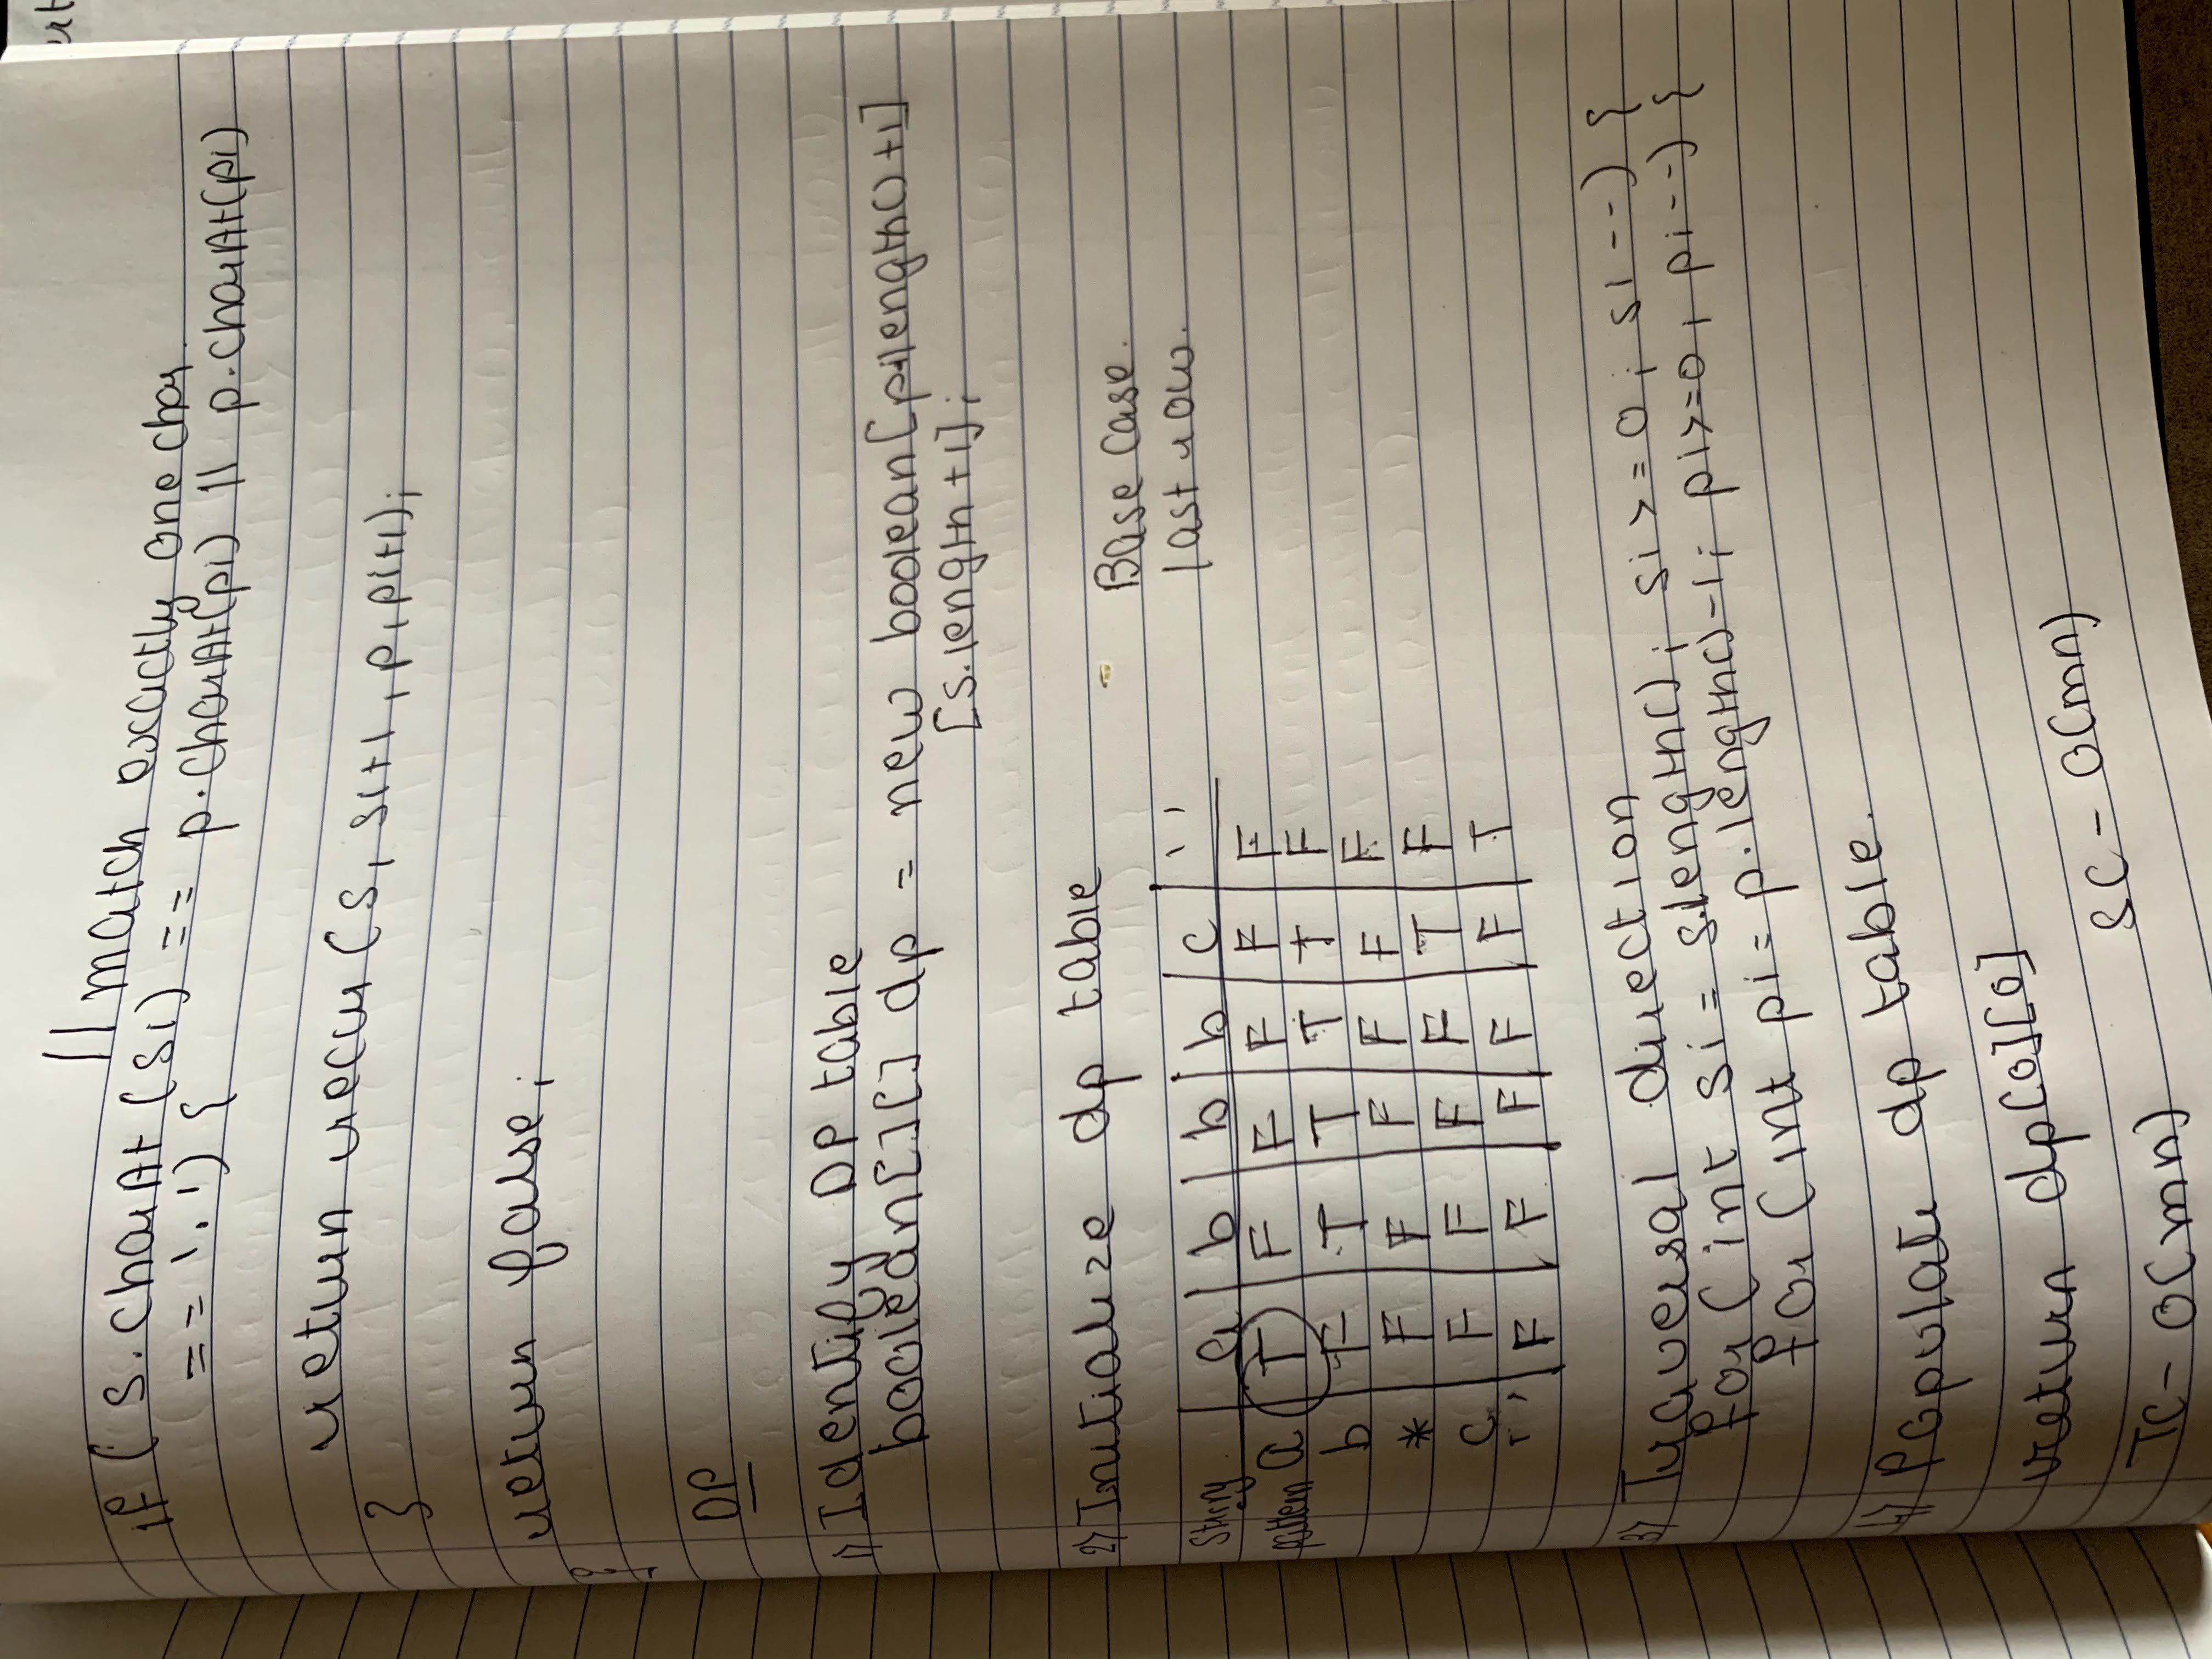 // match exactly one char.
if ( s.charAt (si) == p.charAt(pi) || p.charAt(pi)
== '.') {
return recur (s, si+1, p, pi+1);
}
return false;
DP
1) Identify DP table
boolean[][] dp = new boolean[p.length()+1]
[s.length +1];
2) Initialize dp table
Base case.
last row.
String a b b b c ' '
pattern a T F F F F F
b F T T T T F
* F F F F F F
c F F F F T F
' ' F F F F F T
3) Traversal direction
for ( int si = s.length(); si >= 0; si --) {
for (int pi = p.length()-1; pi>=0; pi--) {
4) Populate dp table.
return dp[0][0]
SC - O(mn)
TC - O(mn)